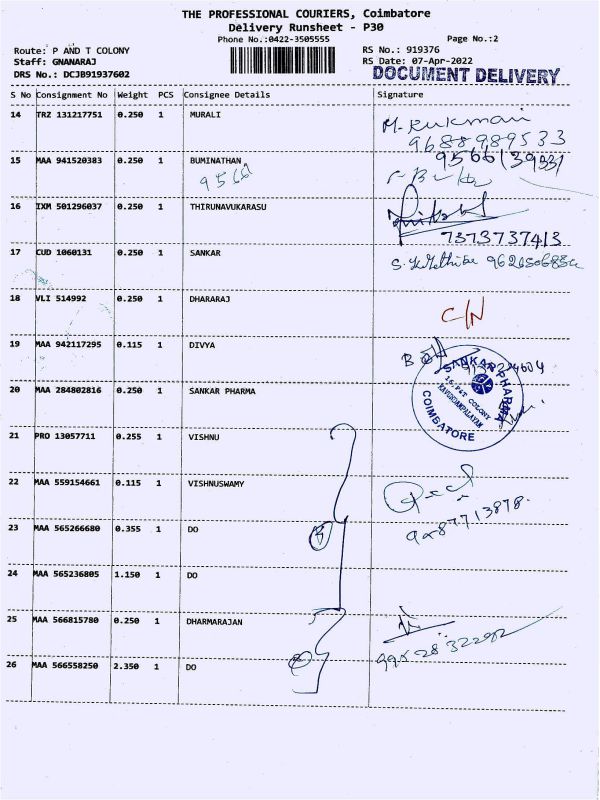 THE PROFESSIONAL COURIERS, Coimbatore
Delivery Runsheet - P30
Phone No.:0422-3505555
Page No.:2
Route: P AND T COLONY
RS No.: 919376
Staff: GNANARAJ
RS Date: 07-Apr-2022
DRS No.: DCJB91937602
DOCUMENT DELIVERY
S No Consignment No Weight PCS Consignee Details Signature
14 TRZ 131217751 0.250 1 MURALI M. Rukmani
9688989533
15 MAA 941520383 0.250 1 BUMINATHAN
9566
16 IXM 501296037 0.250 1 THIRUNAVUKARASU
7373737413
17 CUD 1060131 0.250 1 SANKAR
18 VLI 514992 0.250 1 DHARARAJ C/N
19 MAA 942117295 0.115 1 DIVYA
SANKAR PHARMA
16, P&T COLONY
KAVUNDAMPALAYAM
COIMBATORE
20 MAA 284802816 0.250 1 SANKAR PHARMA
21 PRO 13057711 0.255 1 VISHNU
22 MAA 559154661 0.115 1 VISHNUSWAMY
23 MAA 565266680 0.355 1 DO
24 MAA 565236805 1.150 1 DO
25 MAA 566815780 0.250 1 DHARMARAJAN
26 MAA 566558250 2.350 1 DO